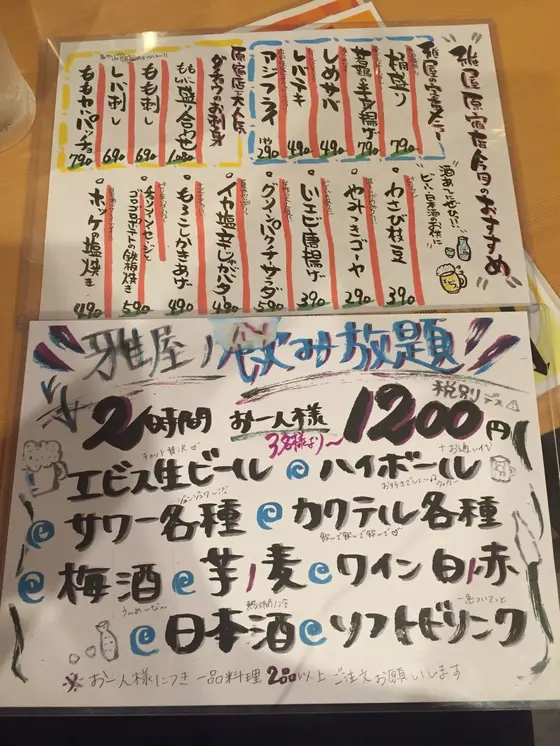 雅屋原宿店今日のおすすめ
雅屋の定番メニュー
桶盛り 790
若鶏の半身揚げ 790
しめサバ 490
レバテキ 490
アジフライ 290
原宿店大人気
ダチョウのお刺身
もも・レバ盛り合わせ 1080
もも刺し 690
レバ刺し 690
ももカルパッチョ 790
酒あてにぜひ!!
ビール、日本酒のお供に
わさび枝豆 390
やみつきゴーヤ 290
川エビ唐揚げ 390
グリーンパクチーサラダ 590
イカ塩辛じゃがバタ 490
もろこしかきあげ 490
チョリソーソーセージと
ゴロゴロポテトの鉄板焼き 590
ホッケの塩焼き 490
雅屋ノ飲み放題
税別デス
2時間 お一人様 1200円
3名様より〜
チョット贅沢
エビス生ビール @ ハイボール
@ サワー各種 @ カクテル各種
飲んで飲んで飲んで
@ 梅酒 @ 芋/麦 @ ワイン白/赤
うぃ〜め〜な〜
@ 日本酒 @ ソフトドリンク
※お一人様につき一品料理2品以上ご注文お願いします